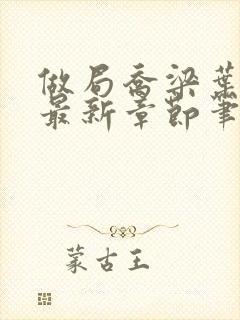 做局乔梁叶
最新章节笔
蒙古王